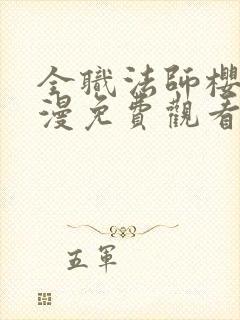 全職法師櫻
漫免費觀看
五軍